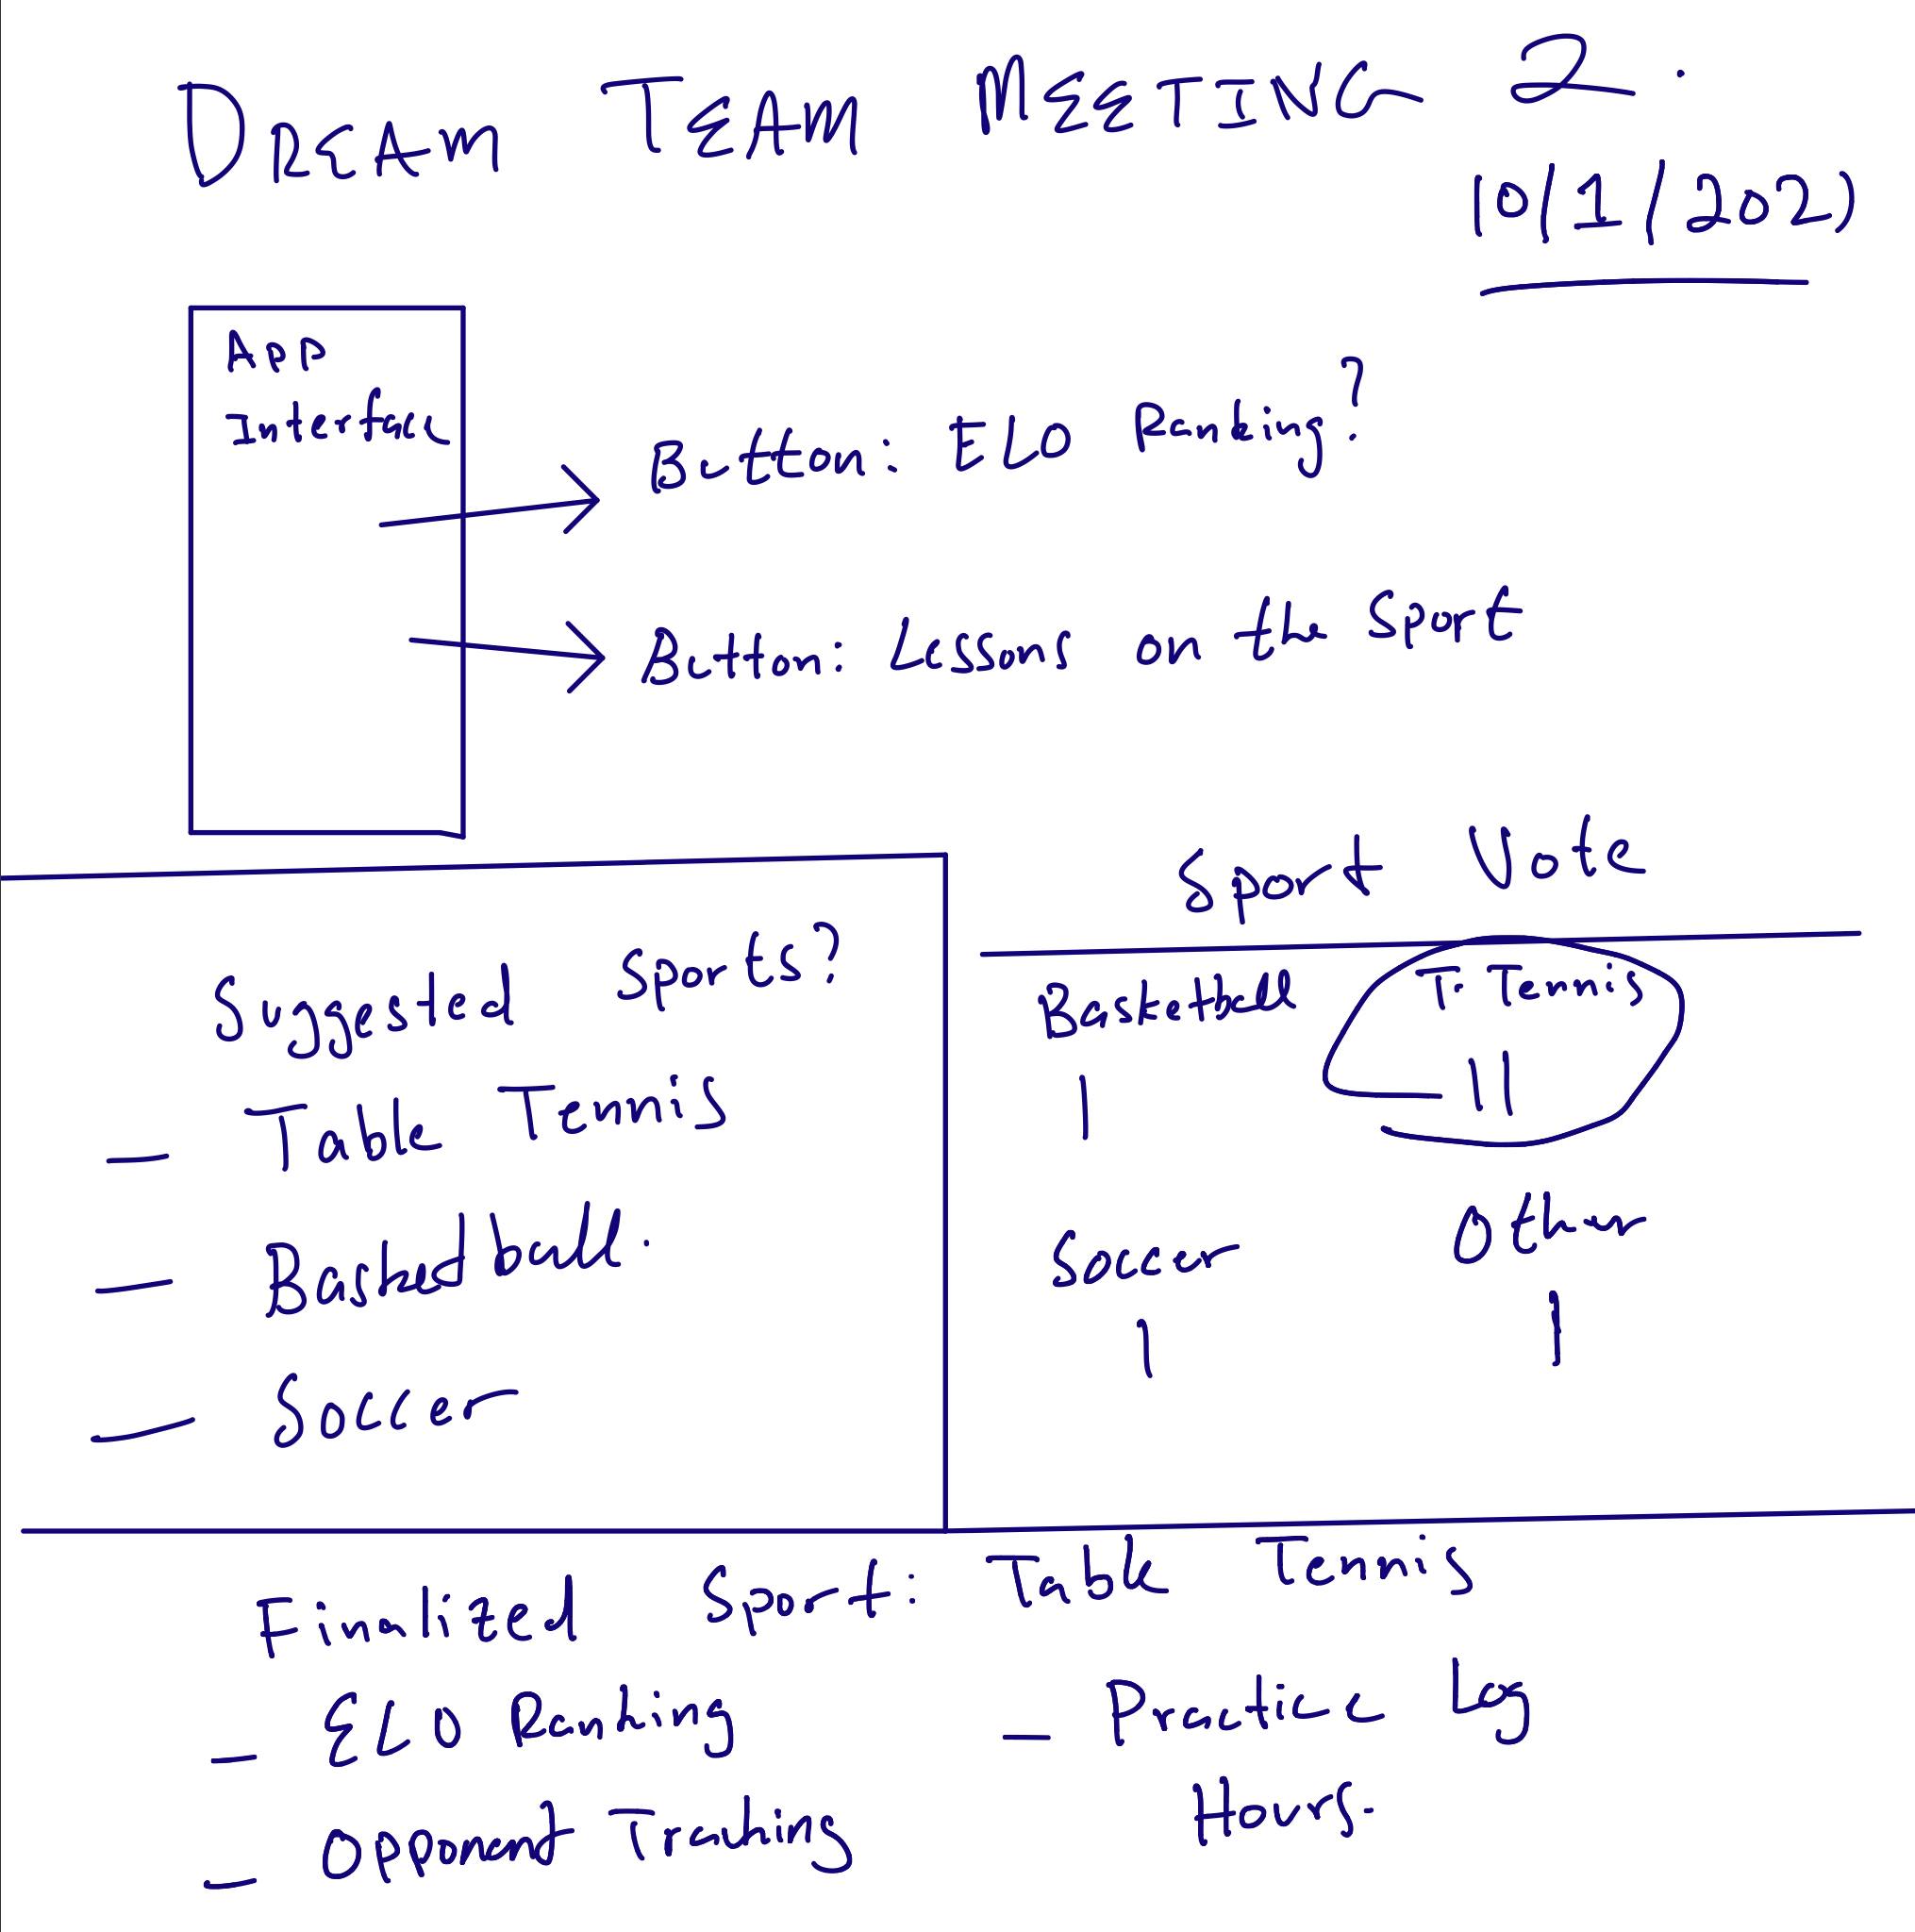 DREAM TEAM MEETING 2.
10/1/2021
App
Interface
Button: ELO Ranking?
Button: Lessons on the Sport
Suggested Sports?
- Table Tennis
- Basketball.
- Soccer
Sport Vote
Basketball T. Tennis
| ||
Soccer Other
| |
Finalized Sport: Table Tennis
- ELO Ranking
- Opponent Tracking
- Practice Log
Hours.